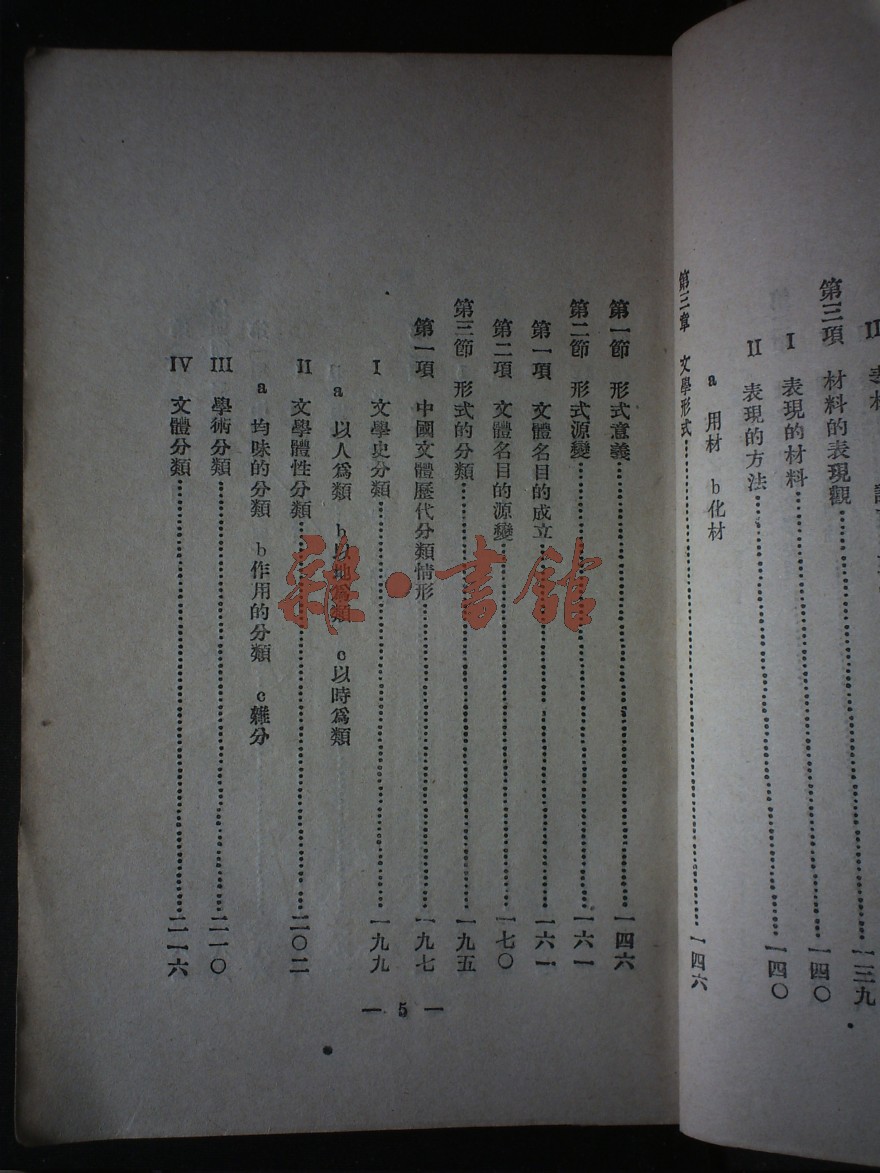 第三項 材料的表現觀……一三九
I 表現的材料……一四〇
II 表現的方法……一四〇
a 用材 b化材
第三章 文學形式……一四六
第一節 形式意義……一四六
第二節 形式源變……一六一
第一項 文體名目的成立……一六一
第二項 文體名目的源變……一七〇
第三節 形式的分類……一九五
第一項 中國文體歷代分類情形……一九七
I 文學史分類……一九九
a 以人爲類 b以地爲類 c以時爲類
II 文學體性分類……二〇二
a 均味的分類 b作用的分類 c雜分
III 學術分類……二一〇
IV 文體分類……二一六
— 5 —
雜·書館